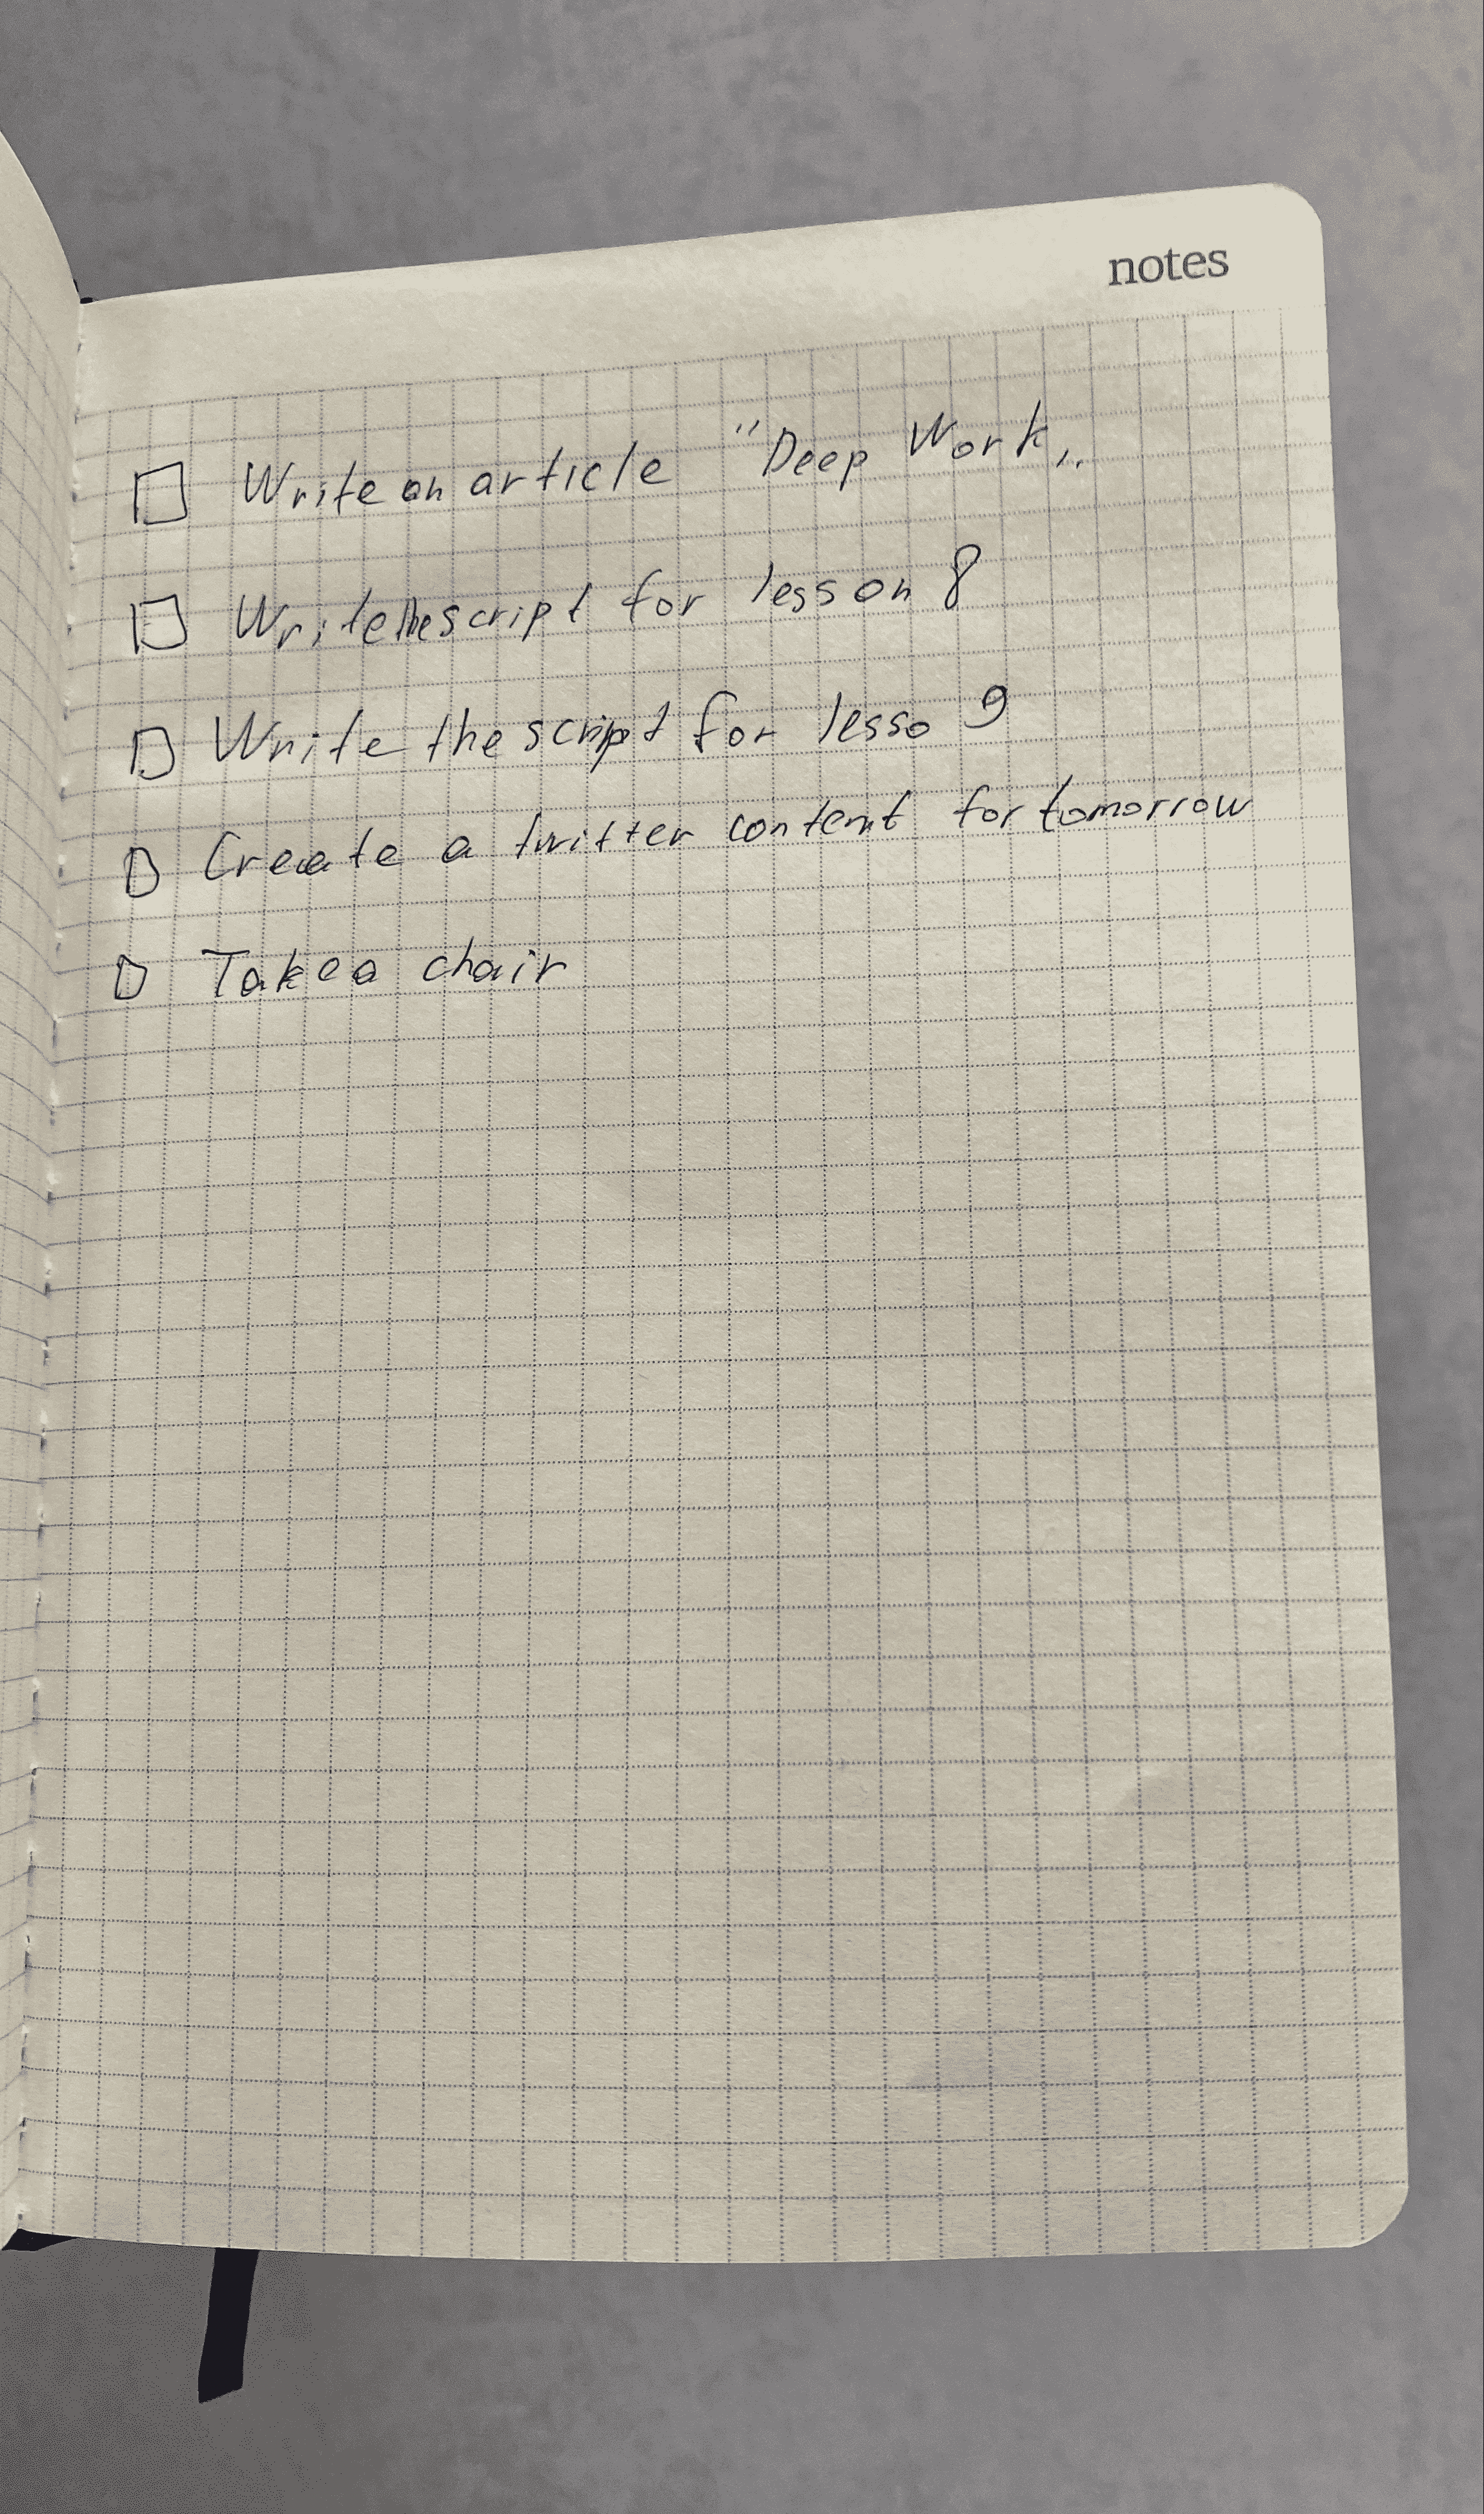 notes
☐ Write an article "Deep Work„
☐ Write the script for lesson 8
☐ Write the script for lesso 9
☐ Create a twitter content for tomorrow
☐ Take a chair